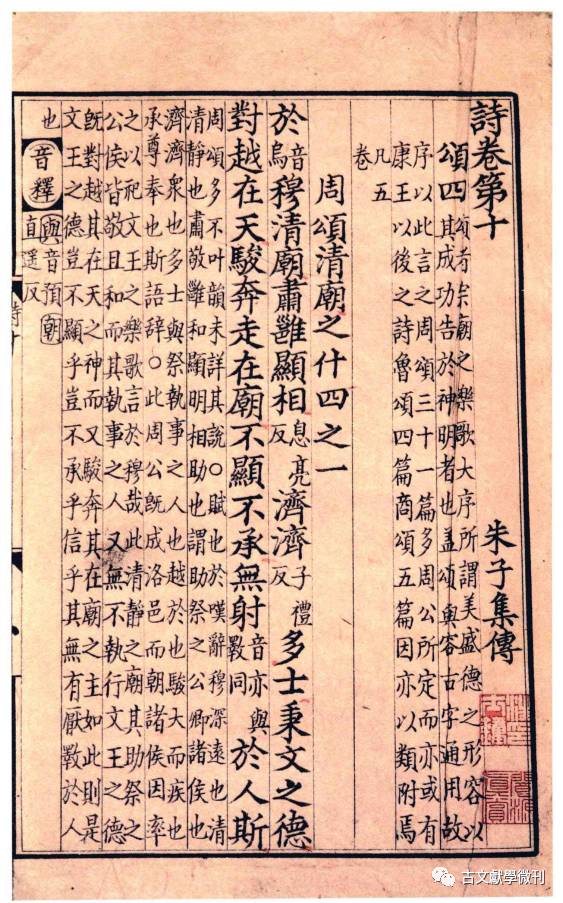 詩卷第十 朱子集傳
頌四頌者宗廟之樂歌大序所謂美盛德之形容以
其成功告於神明者也蓋頌與容古字通用故
序以此言之周頌三十一篇多周公所定而亦或有
康王以後之詩魯頌四篇商頌五篇因亦以類附焉
凡五
卷
周頌清廟之什四之一
於音烏穆清廟肅雝顯相息亮反濟濟子禮反多士秉文之德
對越在天駿奔走在廟不顯不承無射音亦與斁同於人斯
周頌多不叶韻未詳其說○賦也於嘆辭穆深遠也清
清靜也肅敬雝和顯明相助也謂助祭之公卿諸侯也
濟濟衆也多士與祭執事之人也越於也駿大而疾也
承尊奉也斯語辭○此周公既成洛邑而朝諸侯因率
之以祀文王之樂歌言於穆哉此清靜之廟其助祭之
公侯皆敬且和而其執事之人又無不執行文王之德
既對越其在天之神而又駿奔其在廟之主如此則是
文王之德豈不顯乎豈不承乎信乎其無有厭斁於人
也音釋與音預朝
直遥反
詩十
古文獻學微刊